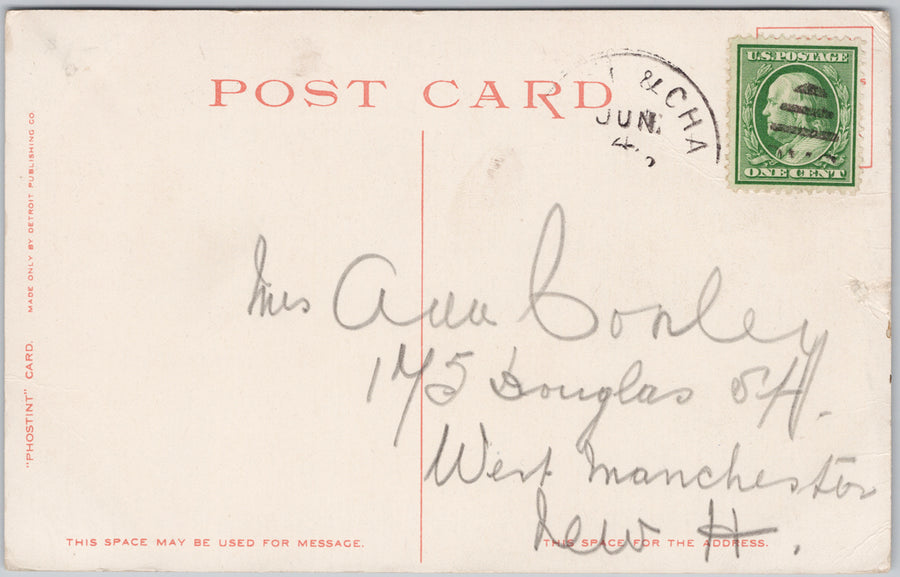 POST CARD
& CHA
JUN
4
U.S. POSTAGE
ONE CENT
Mrs Ann Conley
175 Douglas St.
West Manchester
New H.
"PHOSTINT" CARD. MADE ONLY BY DETROIT PUBLISHING CO.
THIS SPACE MAY BE USED FOR MESSAGE.
THIS SPACE FOR THE ADDRESS.